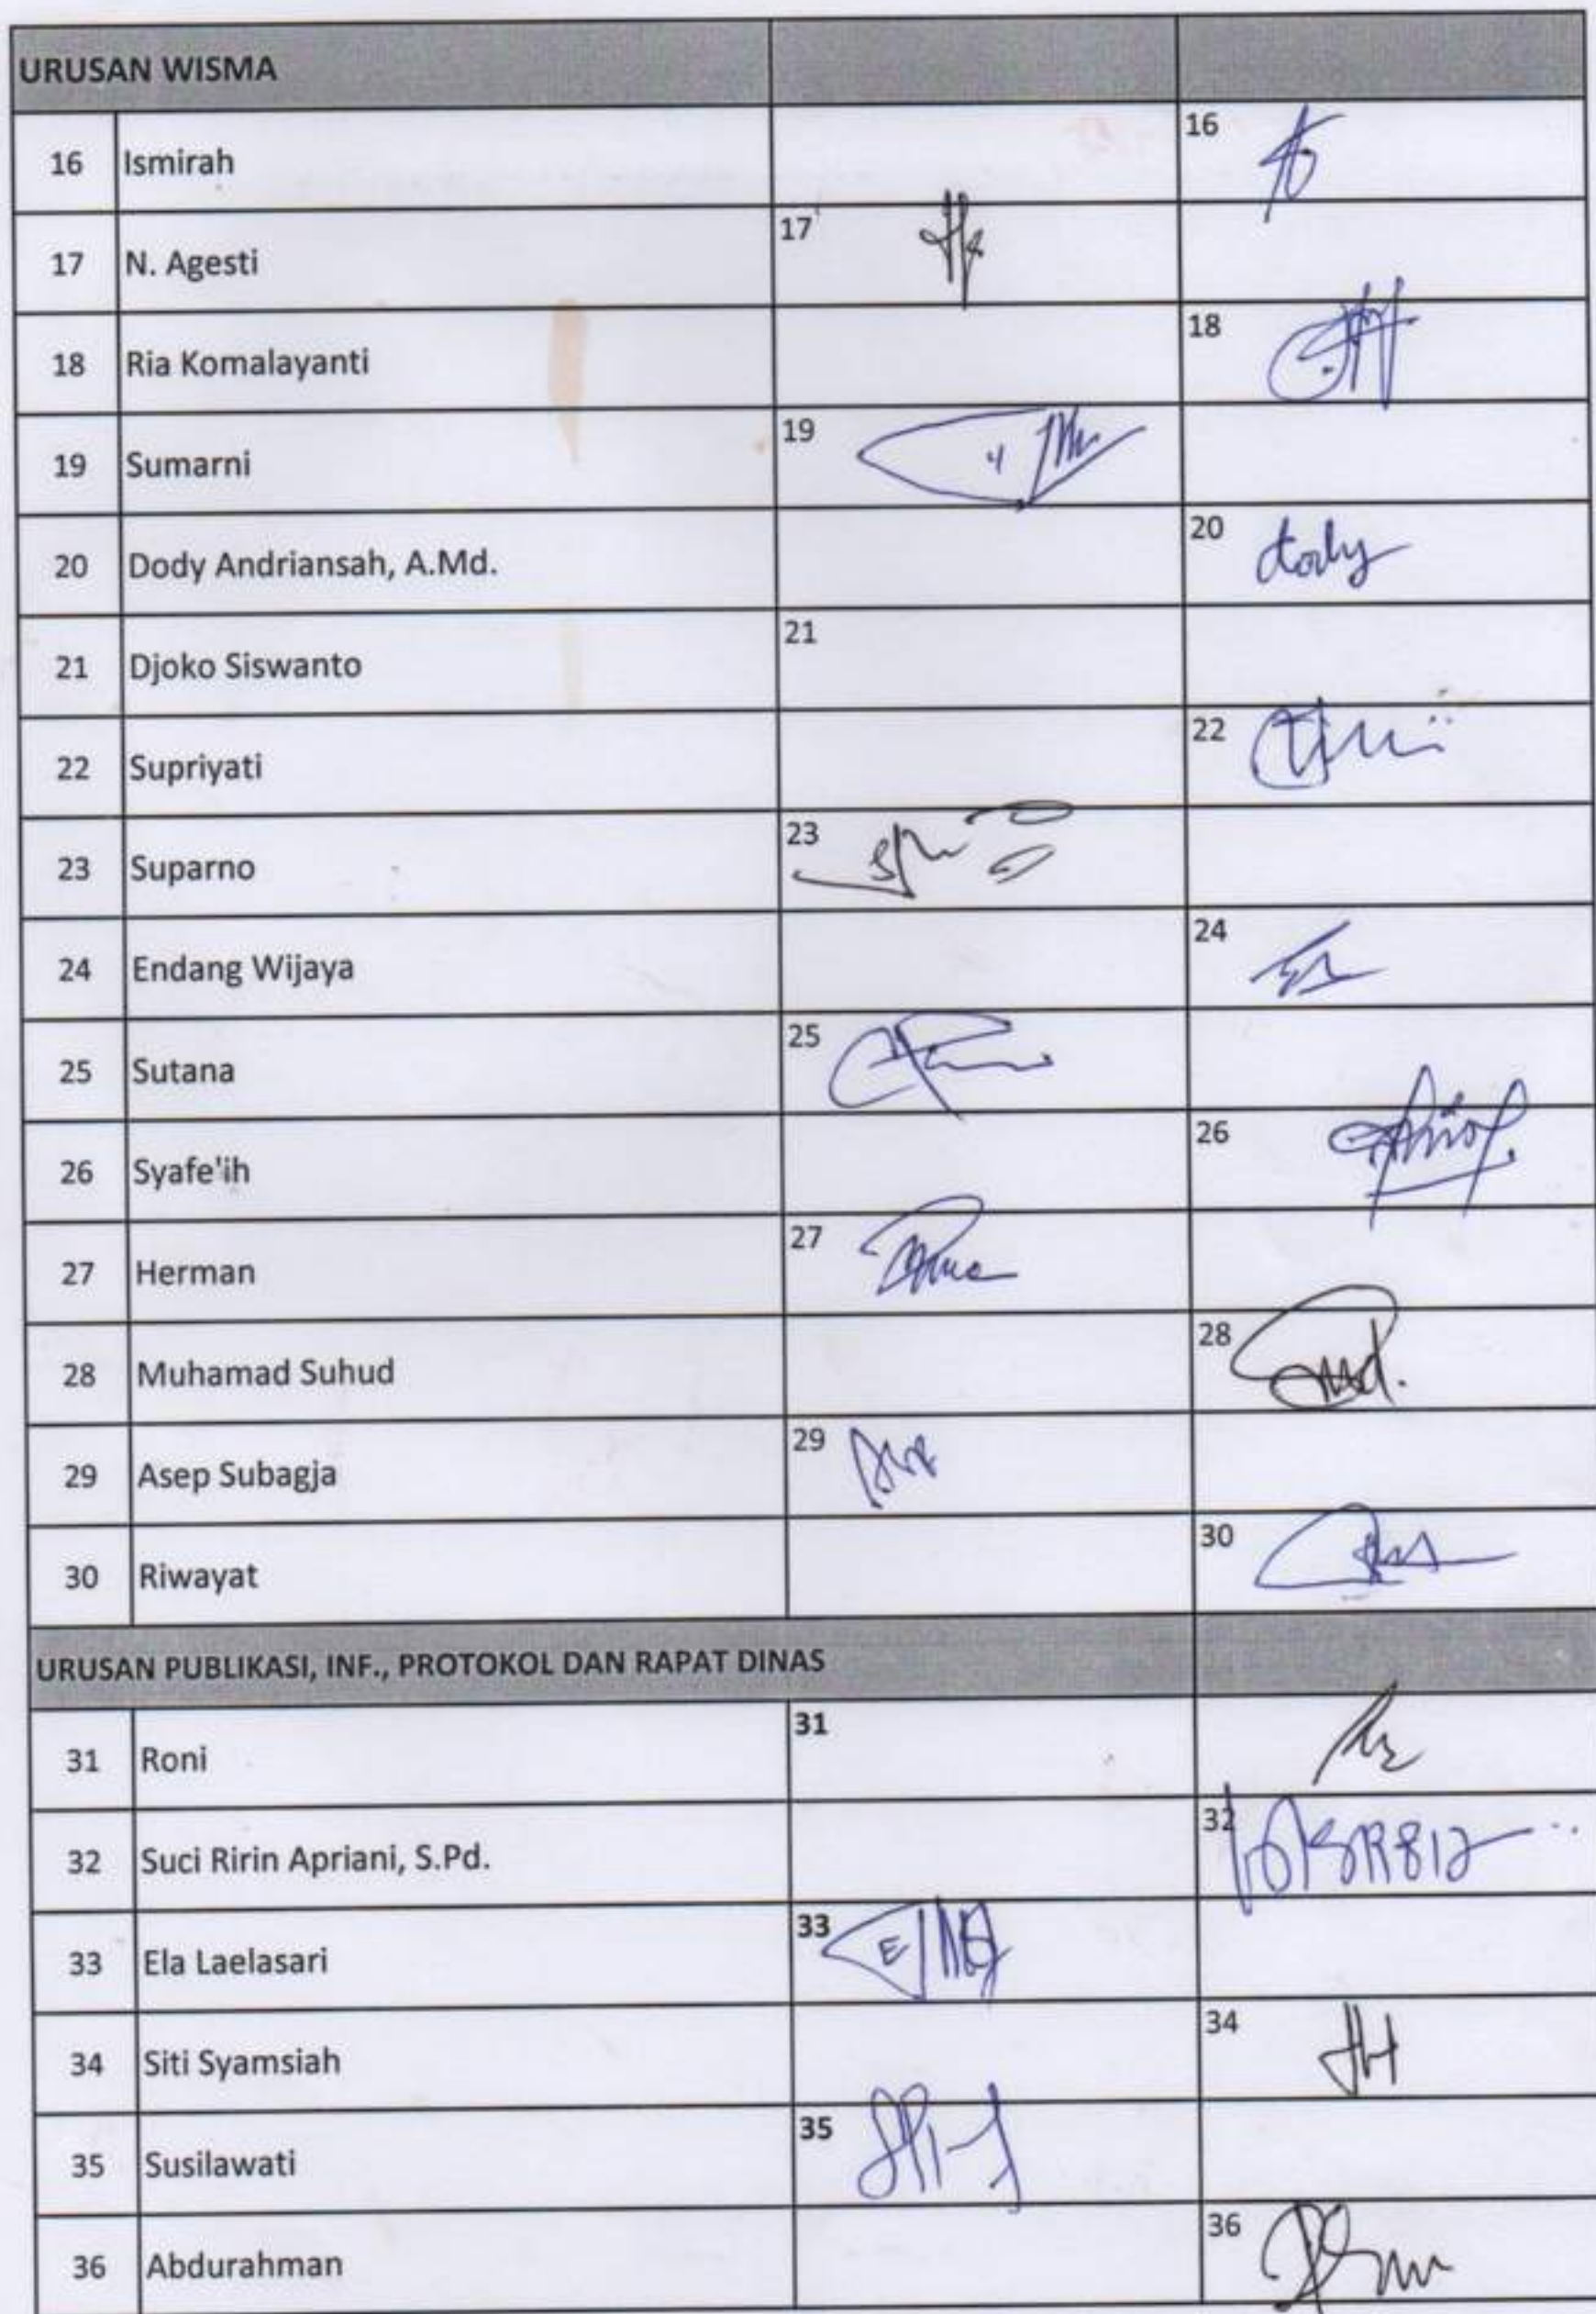 URUSAN WISMA
16 Ismirah 16
17 N. Agesti 17
18 Ria Komalayanti 18
19 Sumarni 19
20 Dody Andriansah, A.Md. 20 dody
21 Djoko Siswanto 21
22 Supriyati 22
23 Suparno 23
24 Endang Wijaya 24
25 Sutana 25
26 Syafe'ih 26
27 Herman 27
28 Muhamad Suhud 28
29 Asep Subagja 29
30 Riwayat 30
URUSAN PUBLIKASI, INF., PROTOKOL DAN RAPAT DINAS
31 Roni 31
32 Suci Ririn Apriani, S.Pd. 32
33 Ela Laelasari 33
34 Siti Syamsiah 34
35 Susilawati 35
36 Abdurahman 36